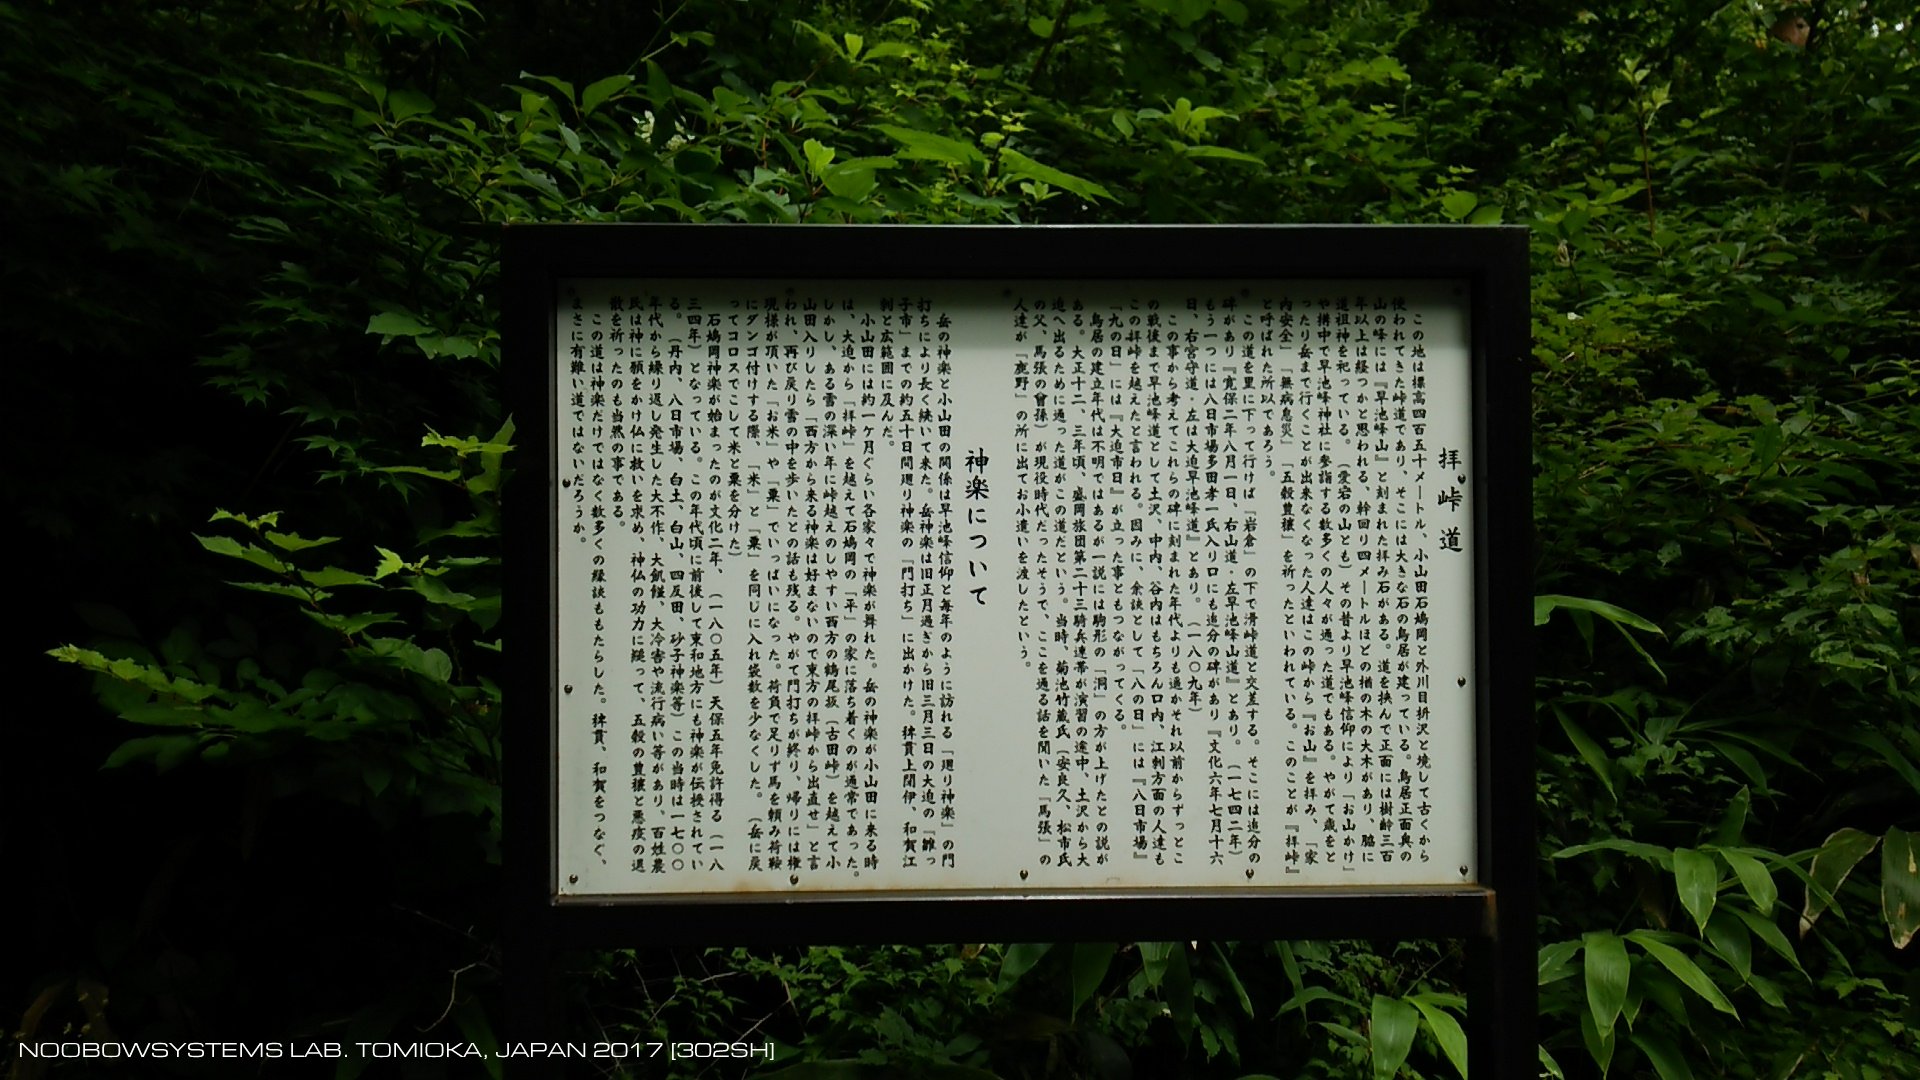 拝峠道
この地は標高四百五十メートル、小山田石鳩岡と外川目折沢と境して古くから
使われてきた峠道であり、そこには大きな石の鳥居が建っている。鳥居正面奥の
山の峰には『早池峰山』と刻まれた拝み石がある。道を挟んで正面には樹齢三百
年以上は経つかと思われる、幹回り四メートルほどの楢の木の大木があり、脇に
道祖神を祀っている。(愛宕の山とも)その昔より早池峰信仰により「お山かけ」
や講中で早池峰神社に参詣する数多くの人々が通った道でもある。やがて歳をと
ったり岳まで行くことが出来なくなった人達はこの峠から『お山』を拝み、「家
内安全」「無病息災」「五穀豊穣」を祈ったといわれている。このことが『拝峠』
と呼ばれた所以であろう。
この道を里に下って行けば「岩倉」の下で滑峠道と交差する。そこには追分の
碑があり『寛保二年八月一日、右山道・左早池峰山道』とあり。(一七四二年)
もう一つには八日市場多田孝一氏入り口にも追分の碑があり『文化六年七月十六
日、右宮守道・左は大迫早池峰道』とあり。(一八〇九年)
この事から考えてこれらの碑に刻まれた年代よりも遥かそれ以前からずっとこ
の戦後まで早池峰道として土沢、中内、谷内はもちろん口内、江刺方面の人達も
この拝峠を越えたと言われる。因みに、余談として「八の日」には『八日市場』
「九の日」には『大迫市日』が立った事ともつながってくる。
鳥居の建立年代は不明ではあるが一説には駒形の「洞」の方が上げたとの説が
ある。大正十二、三年頃、盛岡旅団第二十三騎兵連帯が演習の途中、土沢から大
迫へ出るために通った道がこの道だという。当時、菊池竹蔵氏(安良久、松市氏
の父、馬張の曾孫)が現役時代だったそうで、ここを通る話を聞いた『馬張』の
人達が『鹿野』の所に出てお小遣いを渡したという。
神楽について
岳の神楽と小山田の関係は早池峰信仰と毎年のように訪れる「廻り神楽」の門
打ちにより長く続いて来た。岳神楽は旧正月過ぎから旧三月三日の大迫の『雛っ
子市』までの約五十日間廻り神楽の『門打ち』に出かけた。稗貫上閉伊、和賀江
刺と広範囲に及んだ。
小山田には約一ケ月ぐらい各家々で神楽が舞れた。岳の神楽が小山田に来る時
は、大迫から「拝峠」を越えて石鳩岡の「平」の家に落ち着くのが通常であった。
しかし、ある雪の深い年に峠越えのしやすい西方の鶴尾坂(古田峠)を越えて小
山田入りしたら「西方から来る神楽は好まないので東方の拝峠から出直せ」と言
われ、再び戻り雪の中を歩いたとの話も残る。やがて門打ちが終り、帰りには権
現様が頂いた「お米」や「粟」でいっぱいになった。荷負で足りず馬を頼み荷鞍
にダンゴ付けする際、「米」と「粟」を同じに入れ袋数を少なくした。(岳に戻
ってコロスでこして米と粟を分けた)
石鳩岡神楽が始まったのが文化二年、(一八〇五年)天保五年免許得る(一八
三四年)となっている。この年代頃に前後して東和地方にも神楽が伝授されてい
る。(丹内、八日市場、白土、白山、四反田、砂子神楽等)この当時は一七〇〇
年代から繰り返し発生した大不作、大飢饉、大冷害や流行病い等があり、百姓農
民は神に願をかけ仏に救いを求め、神仏の功力に縋って、五穀の豊穣と悪疫の退
散を祈ったのも当然の事である。
この道は神楽だけではなく数多くの縁談ももたらした。稗貫、和賀をつなぐ、
まさに有難い道ではないだろうか。
NOOBOWSYSTEMS LAB. TOMIOKA, JAPAN 2017 [302SH]